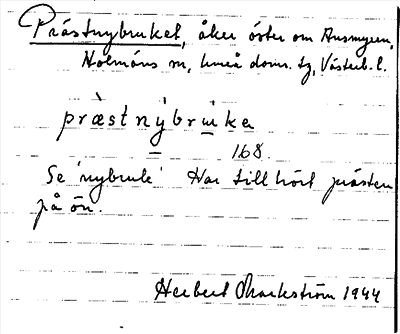 Prästnybruket, åker öster om Ansmyren,
Holmöns sn, Umeå doms. tg, Västerb. l.
præ̀st nýbruka
168.
Se 'nybruk' Har tillhört prästen
på ön.
Herbert Markström 1944